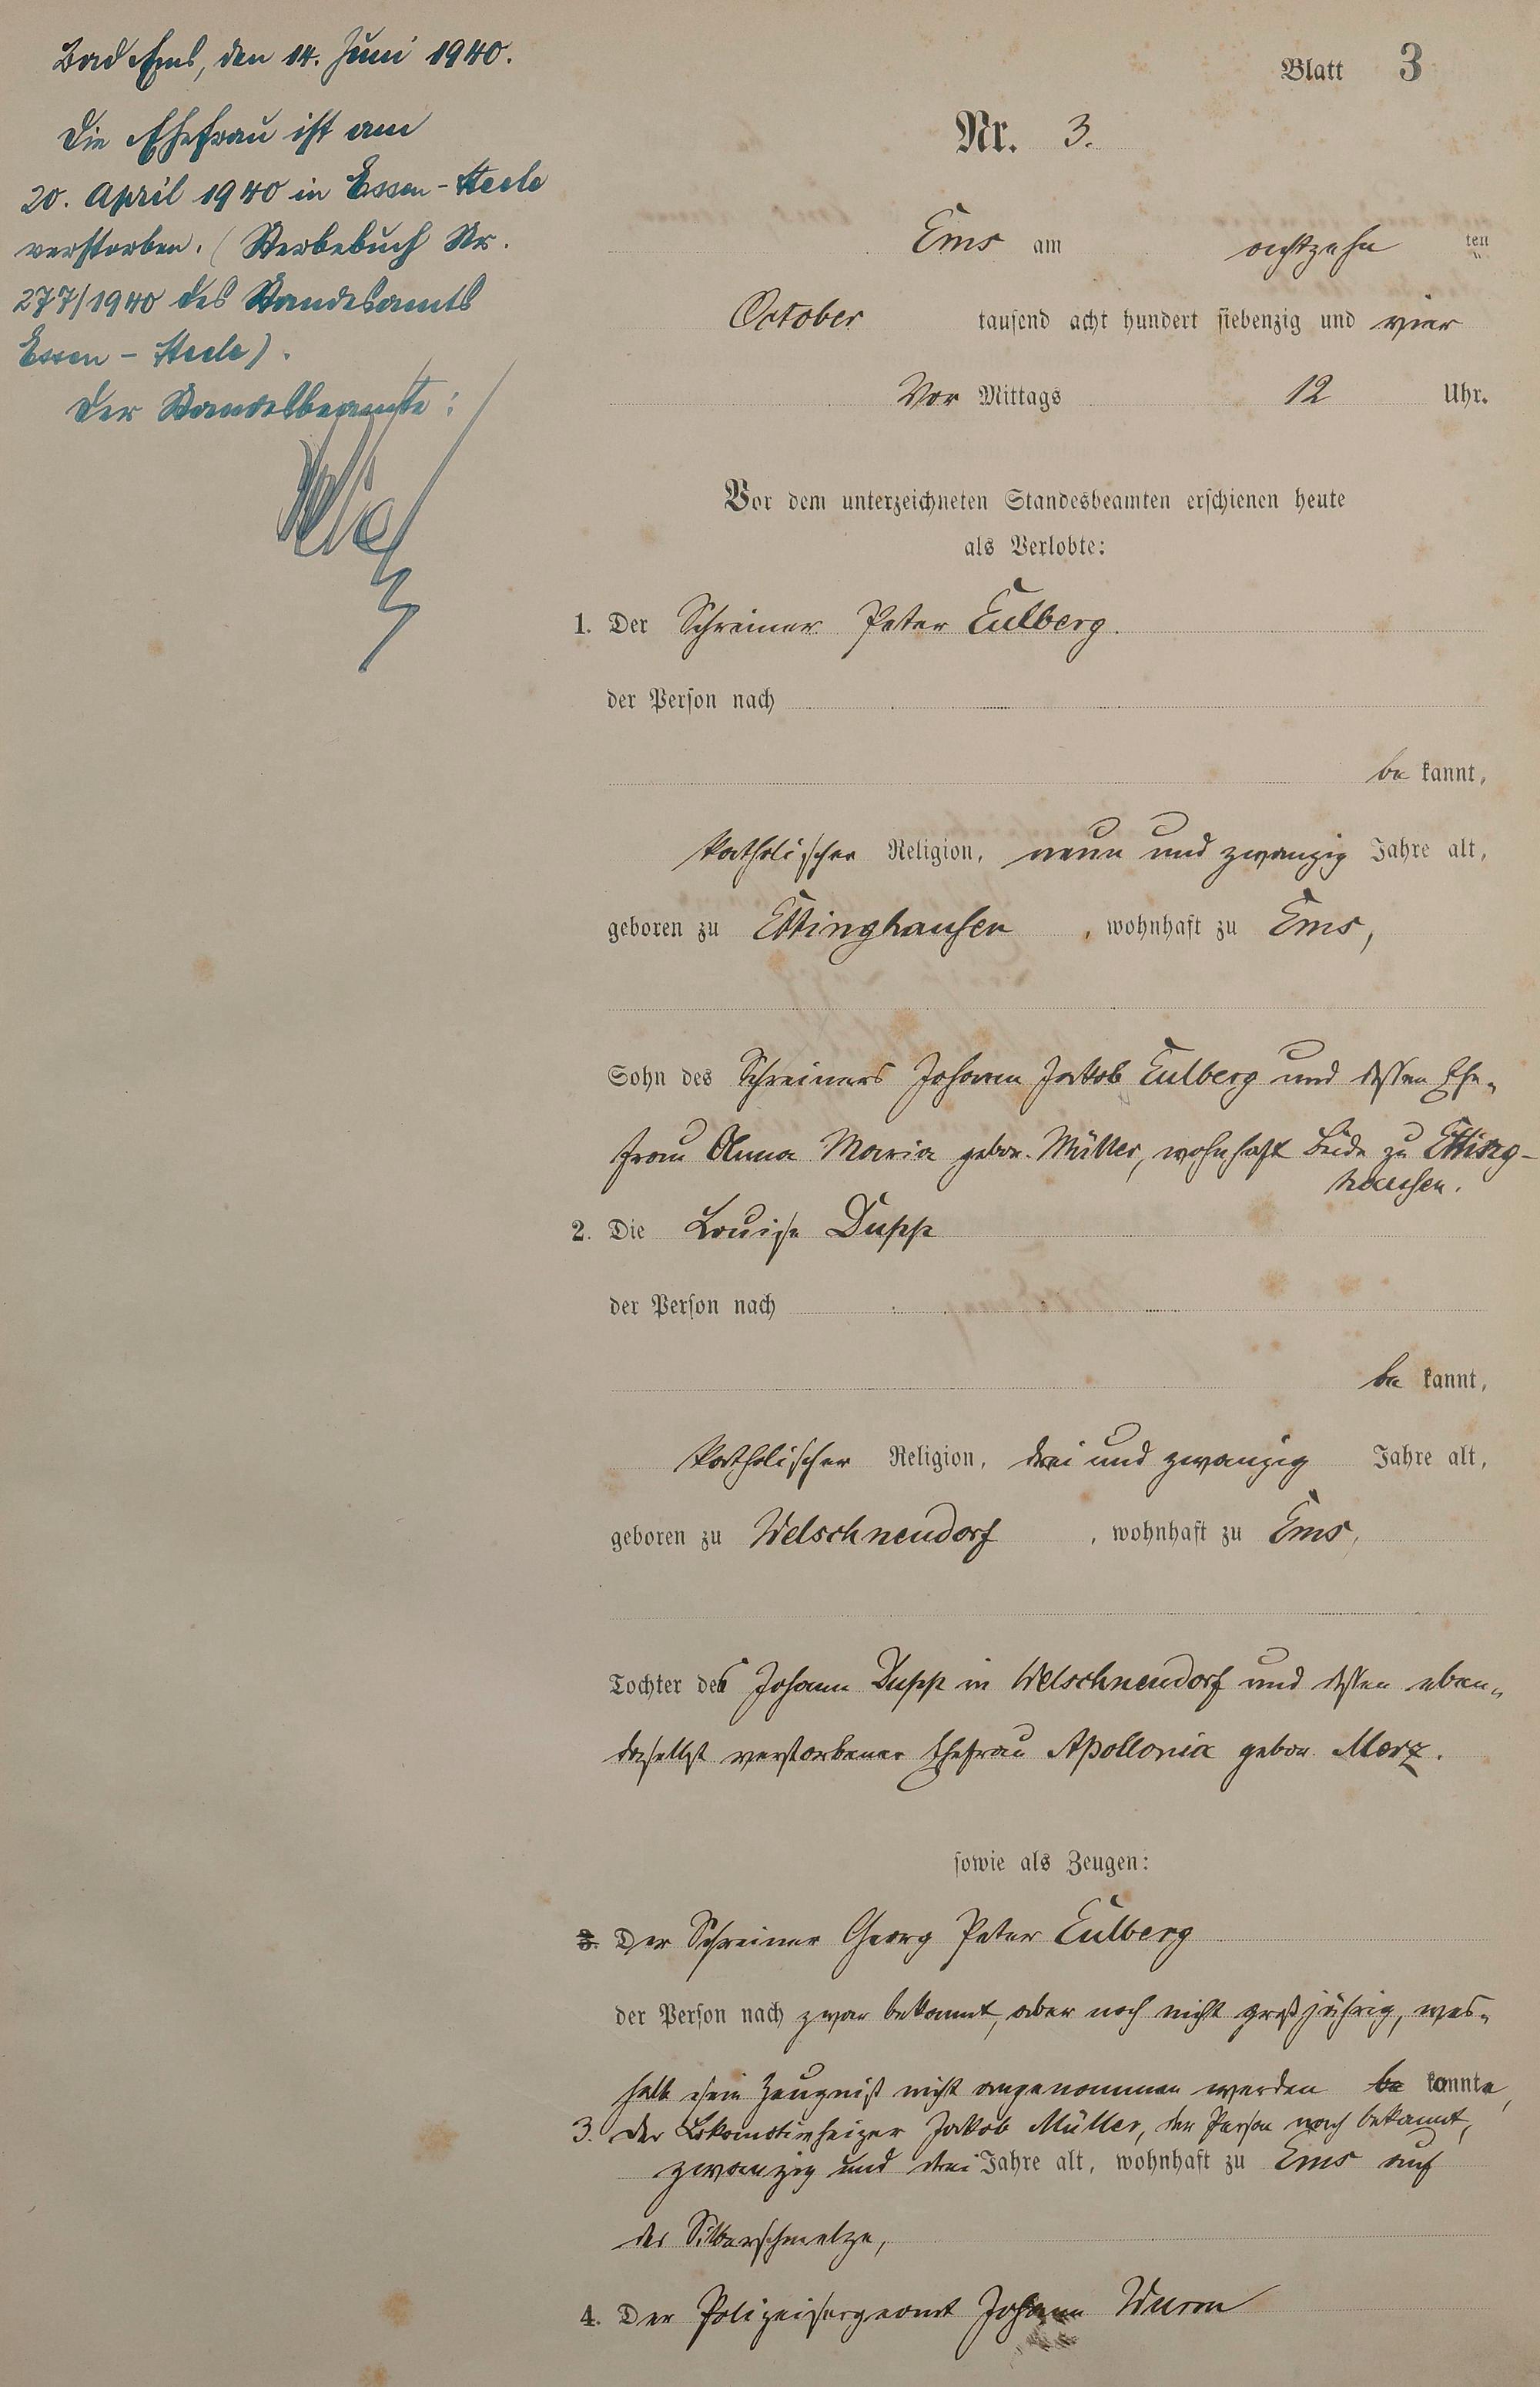 Bad Ems, den 14. Juni 1940.
Die Ehefrau ist am
20. April 1940 in Essen-Steele
verstorben. (Sterbebuch Nr.
277/1940 des Standesamts
Essen-Steele).
Der Standesbeamte:
Blatt 3
Nr. 3.
Ems am achtzehn ten
October tausend acht hundert siebenzig und vier
Vor Mittags 12 Uhr.
Vor dem unterzeichneten Standesbeamten erschienen heute
als Verlobte:
1. Der Schreiner Peter Eulberg.
der Person nach
be kannt,
katholischer Religion, neun und zwanzig Jahre alt,
geboren zu Ettinghausen, wohnhaft zu Ems,
Sohn des Schreiners Johann Jakob Eulberg und dessen Ehe-
frau Anna Maria gebor. Müller, wohnhaft Beide zu Etting-
hausen.
2. Die Louise Dupp
der Person nach
be kannt,
katholischer Religion, drei und zwanzig Jahre alt,
geboren zu Welschneudorf, wohnhaft zu Ems,
Tochter des Johann Dupp in Welschneudorf und dessen eben-
daselbst verstorbener Ehefrau Apollonia gebor. Morz.
sowie als Zeugen:
3. Der Schreiner Georg Peter Eulberg
der Person nach zwar bekannt, aber noch nicht großjährig, wes-
halb sein Zeugniß nicht angenommen werden be konnte,
3. Der Lokomotivheizer Jakob Müller, der Person nach bekannt,
zwanzig und drei Jahre alt, wohnhaft zu Ems auf
der Silberschmelze,
4. Der Polizeisergeant Johann Wurm